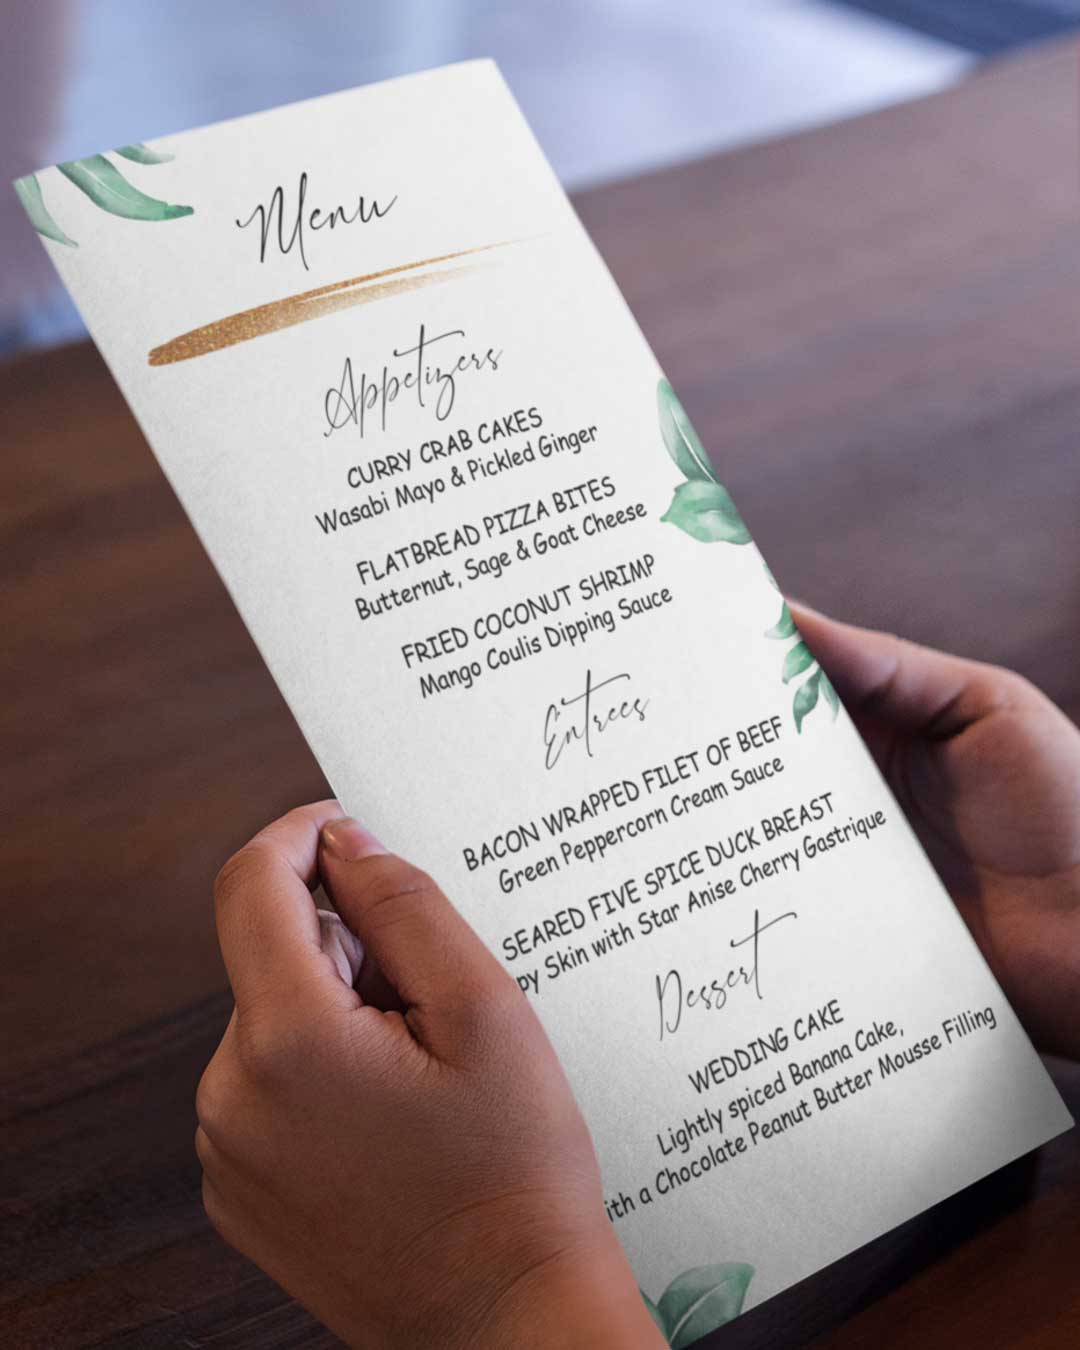 Menu
Appetizers
CURRY CRAB CAKES
Wasabi Mayo & Pickled Ginger
FLATBREAD PIZZA BITES
Butternut, Sage & Goat Cheese
FRIED COCONUT SHRIMP
Mango Coulis Dipping Sauce
Entrees
BACON WRAPPED FILET OF BEEF
Green Peppercorn Cream Sauce
SEARED FIVE SPICE DUCK BREAST
Skin with Star Anise Cherry Gastrique
Dessert
WEDDING CAKE
Lightly spiced Banana Cake,
a Chocolate Peanut Butter Mousse Filling